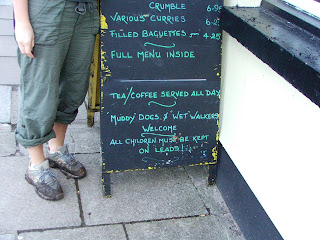 CRUMBLE 6.95
VARIOUS CURRIES 6.25
FILLED BAGUETTES — 4.25
FULL MENU INSIDE
TEA/COFFEE SERVED ALL DAY
'MUDDY' DOGS & 'WET' WALKERS
WELCOME
ALL CHILDREN MUST BE KEPT
ON LEADS!